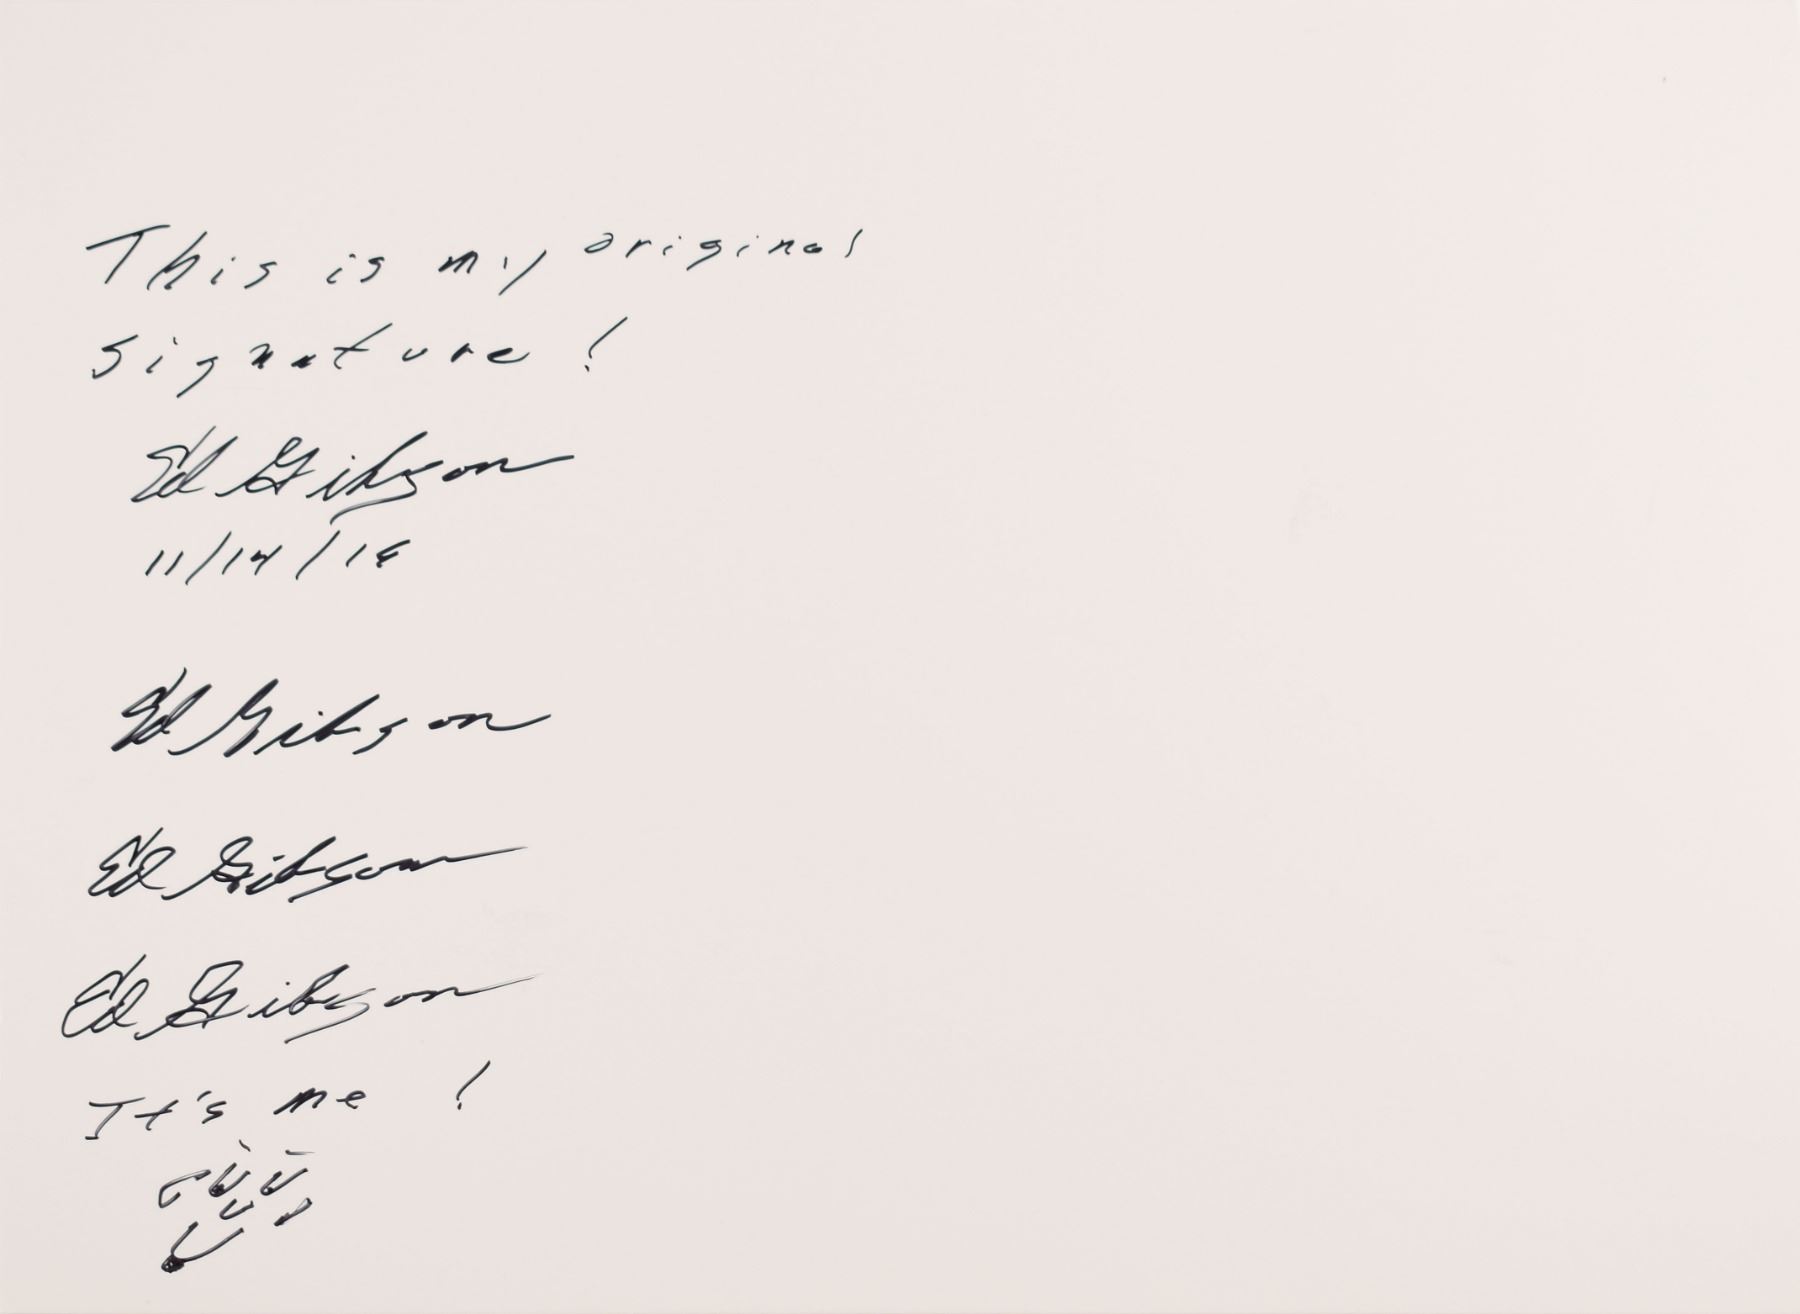 This is my original
signature!
Ed Gibson
11/14/18
Ed Gibson
Ed Gibson
Ed Gibson
It's me !